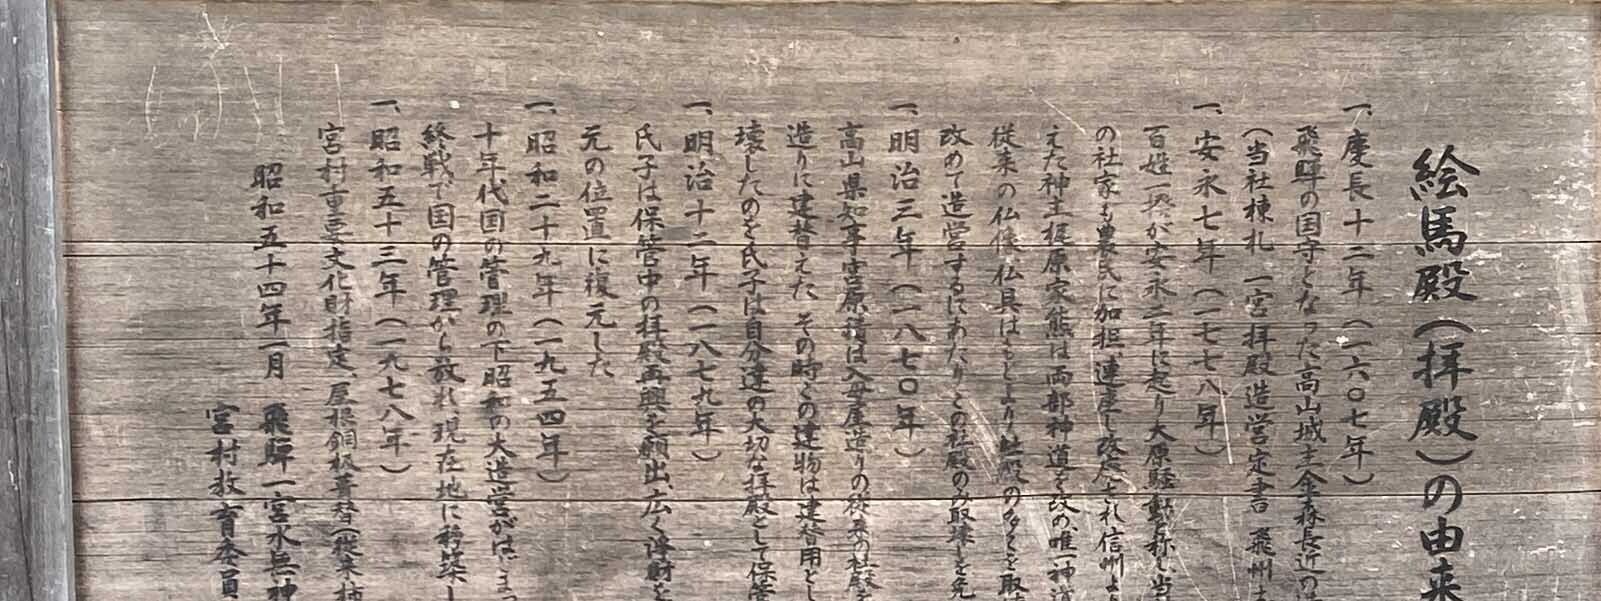 絵馬殿(拝殿)の由来
一、慶長十二年(一六〇七年)
飛騨の国守となった高山城主金森長近の
(当社棟札 一宮拝殿造営定書 飛州
一、安永七年(一七七八年)
百姓一揆が安永二年に起り大原騒動と称し当
の社家も農民に加担、連座し改易され信州より
えた神主梶原家熊は両部神道を改め唯一神道
従来の仏像仏具はもとより社殿の多くを取
改めて造営するにあたりこの社殿のみ取壊しを免
一、明治三年(一八七〇年)
高山県知事宮原積は入母屋造りの従来の社殿を
造りに建替えた その時、この建物は建替用とし
壊したのを氏子は自分達の大切な拝殿として保管
一、明治十二年(一八七九年)
氏子は保管中の拝殿再興を願出、広く浄財を
元の位置に復元した
一、昭和二十九年(一九五四年)
十年代国の管理の下昭和の大造営がはじまっ
終戦で国の管理から放れ現在地に移築し
一、昭和五十三年(一九七八年)
宮村重要文化財指定、屋根銅板葺替(従来柿
昭和五十四年一月
飛騨一宮水無神
宮村教育委員